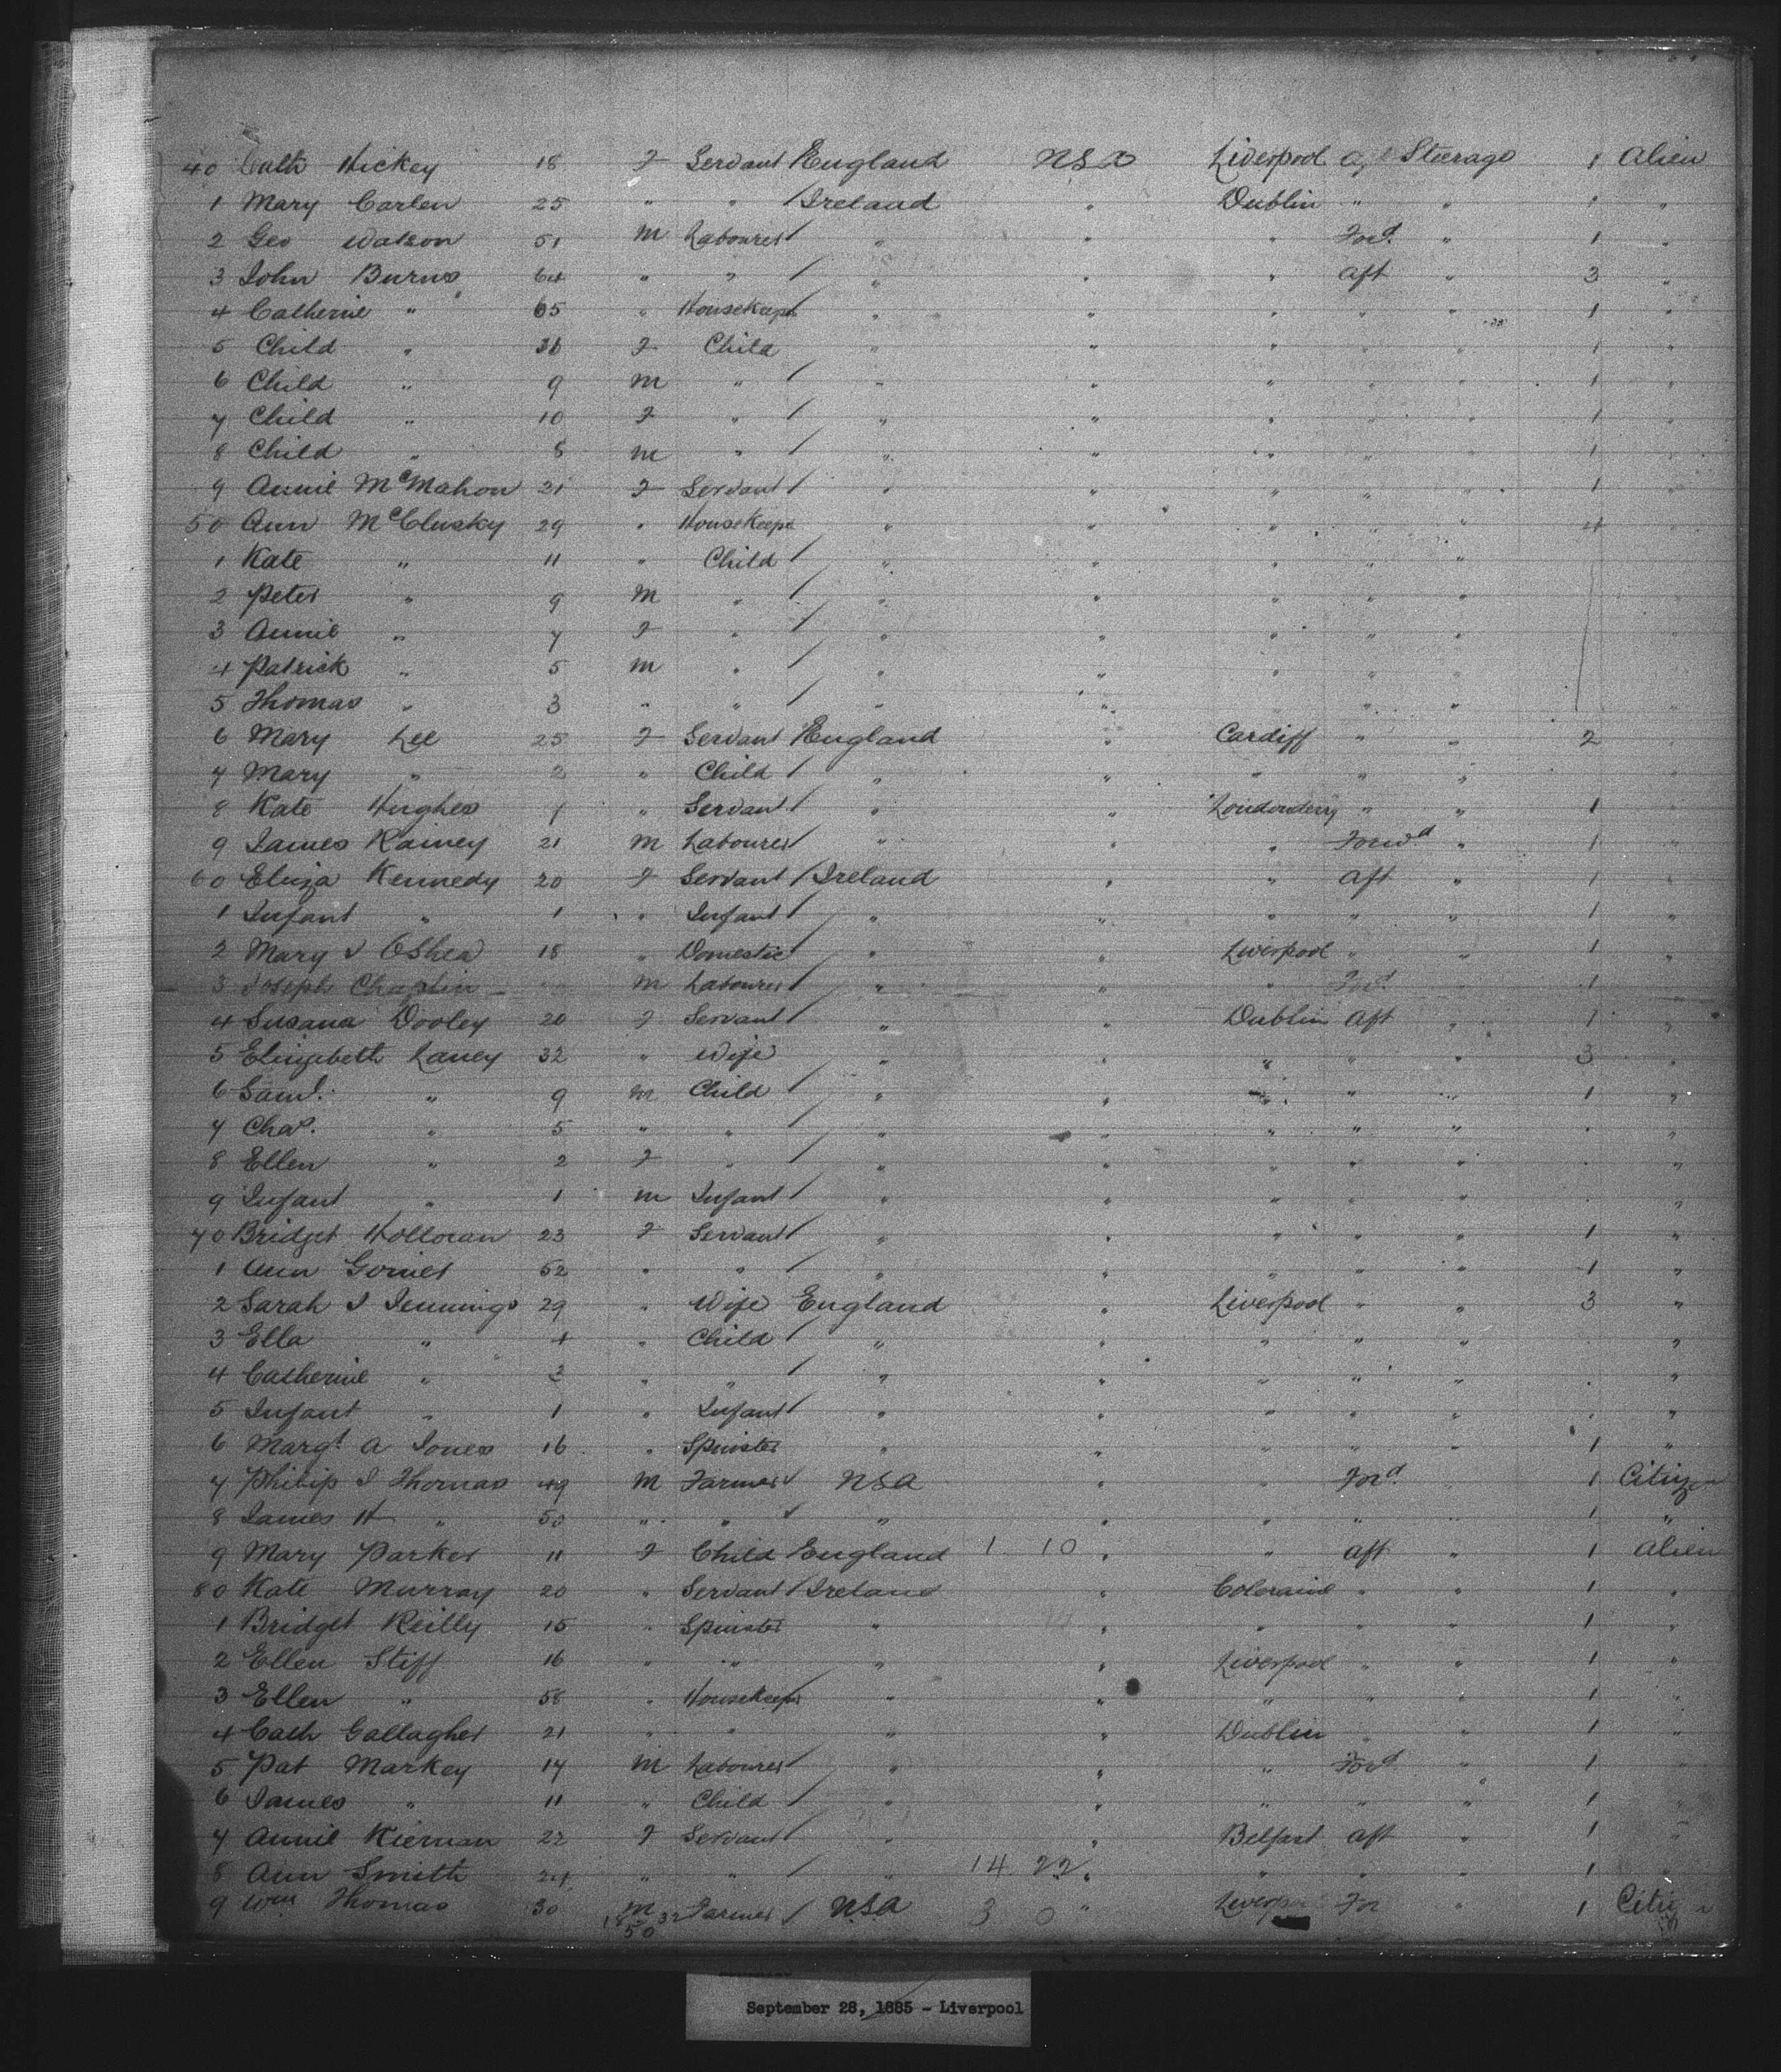 40 Cath Hickey 18 F Servant / England USA Liverpool Aft Steerage 1 Alien
1 Mary Carlen 25 " " / Ireland " Dublin " " 1 "
2 Geo Watson 51 M Labourer / " " " Ford. " 1 "
3 John Burns 64 " " / " " " aft " 3 "
4 Catherine " 65 " Housekeepr " " " " " 1 "
5 Child " F Child " " " " " 1 "
6 Child " 9 M " / " " " " " 1 "
7 Child " 10 F " / " " " " " 1 "
8 Child " 8 M " / " " " " " 1 "
9 Annie McMahon 21 F Servant / " " " " " 1 "
50 Ann McClusky 29 " Housekeepr " " " " " 4 "
1 Kate " 11 " Child / " " " " "
2 Peter " 9 M " / " " " " "
3 Annie " 7 F " / " " " " "
4 Patrick " 5 M " / " " " " "
5 Thomas " 3 " " / " " " " "
6 Mary Lee 25 F Servant / England " Cardiff " " 2
7 Mary " 2 " Child / " " " " "
8 Kate Hughes " Servant / " " Londonderry " " 1
9 James Rainey 21 M Labourer / " " " Forwd " 1 "
60 Eliza Kennedy 20 F Servant / Ireland " " aft " 1 "
1 Infant " 1 " Infant / " " " " " 1 "
2 Mary J OShea 18 " Domestic / " " Liverpool " " 1 "
3 Joseph Chaplin M Labourer / " " " Ford " 1
4 Susana Dooley 20 F Servant / " " Dublin Aft " 1 "
5 Elizebeth Laney 32 " Wife " " " " " 3 "
6 Saml. " 9 M Child / " " " " " 1 "
7 Chas. " 5 " " / " " " " " "
8 Ellen " 2 F " / " " " " " "
9 Infant " 1 M Infant / " " " " " "
70 Bridget Holloran 23 F Servant / " " " " " 1 "
1 Ann 52 " " / " " " " " 1 "
2 Sarah J Jennings 29 " Wife England " Liverpool " " 3 "
3 Ella " 4 " Child / " " " " " "
4 Catherine " 3 " " / " " " " " "
5 Infant " 1 " Infant / " " " " " "
6 Margt A Jones 16 " Spinster " " " " " 1 "
7 Philip J Thomas 49 M Farmer / USA " " Ford " 1 Citizen
8 James H " 50 " " / " " " " " 1 "
9 Mary Parker 11 F Child / England 1 10 " " aft " 1 Alien
80 Kate Murray 20 " Servant / Ireland " Coloraine " " 1 "
1 Bridget Reilly 15 " Spinster " " " " " 1 "
2 Ellen Stiff 16 " " " " Liverpool " " 1 "
3 Ellen " 58 " Housekeepr " " " " " 1 "
4 Cath Gallagher 21 " " " " Dublin " " 1 "
5 Pat Markey 14 M Labourer / " " " Ford " 1 "
6 James " 11 " Child / " " " " " 1 "
7 Annie Kiernan 22 F Servant / " " Belfast aft " 1 "
8 Ann Smith 24 " " / " 14 22 " " " " 1 "
9 Wm Thomas 30 M Farmer / USA 3 0 " Liverpool For " 1 Citizen
18 32
50
September 28, 1885 - Liverpool